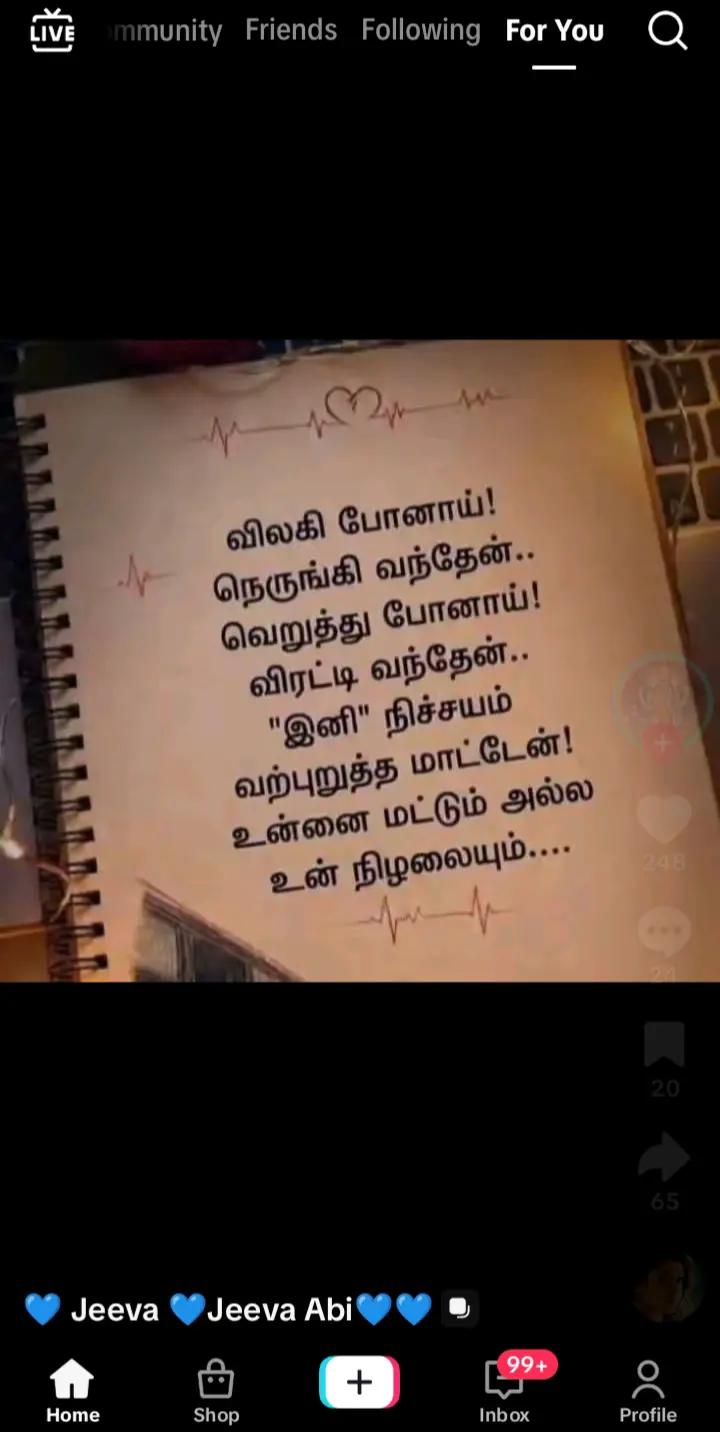 LIVE
mmunity Friends Following For You
விலகி போனாய்!
நெருங்கி வந்தேன்..
வெறுத்து போனாய்!
விரட்டி வந்தேன்..
"இனி" நிச்சயம்
வற்புறுத்த மாட்டேன்!
உன்னை மட்டும் அல்ல
உன் நிழலையும்....
248
24
20
65
💙 Jeeva 💙Jeeva Abi💙💙
99+
Home Shop Inbox Profile